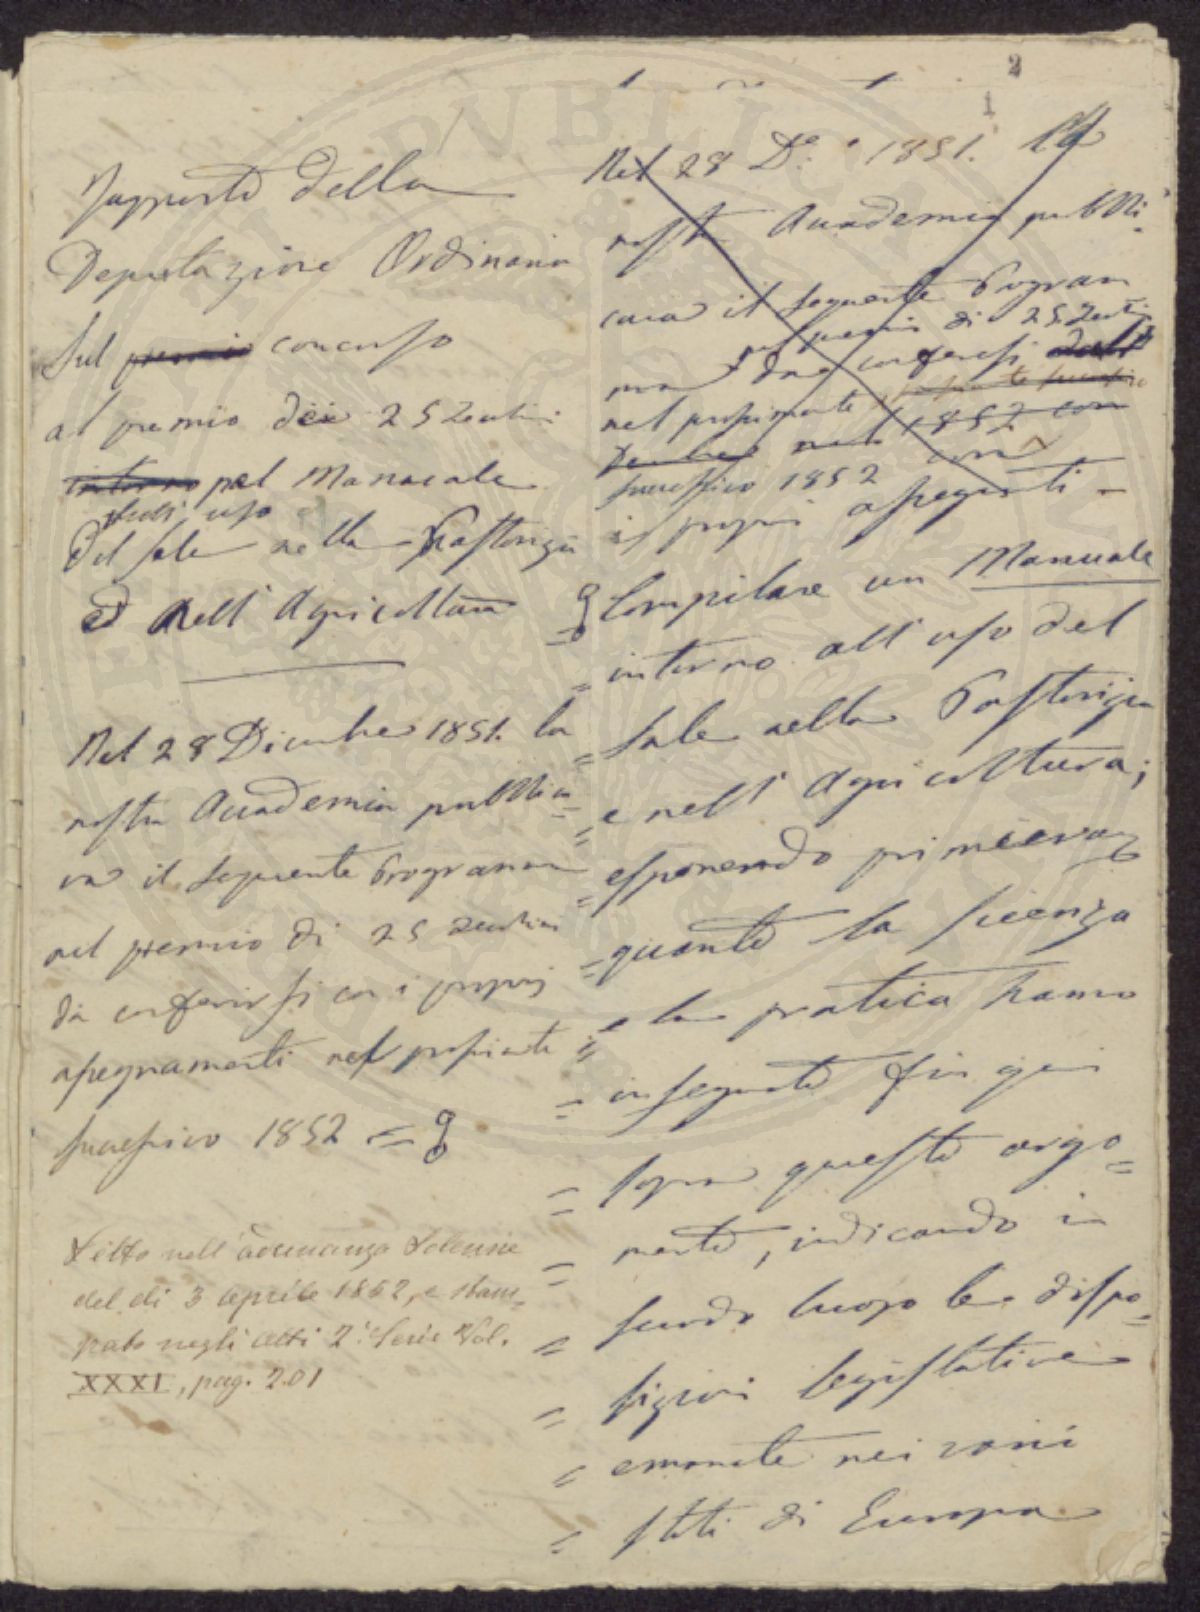 2
1
Rapporto della
Deputazione Ordinaria
Sul premio concorso
al premio dei 25 Zecchini
intorno pel Manuale
sull' uso
del sale nella Pastorizia
ed nell' Agricoltura
Nel 28 Dicembre 1851. la
nostra Accademia pubblica
va il seguente Programma
nel premio di 25 Zecchini
da conferirsi con i proprj
assegnamenti nel prossimo
successivo 1852 =
Letto nell'adunanza Solenne
del dì 3 Aprile 1852, e stam-
pato negli atti 2ª Serie Vol.
XXXI, pag. 201
Nel 28 D.e 1851. la
nostra Accademia pubbli-
cava il seguente Program
pel premio di 25 Zecchini
ma da conferirsi
nel prossimo
1852 con
successivo 1852 con
i proprj assegnamenti =
Compilare un Manuale
= intorno all' uso del
= Sale nella Pastorizia
= e nell' Agricoltura;
= esponendo primiera
= quanto la scienza
= e la pratica hanno
= insegnato fin qui
= sopra questo argo=
= mento, indicando in
= secondo luogo le dispo=
= sizioni legislative
= emanate nei varii
= stati di Europa